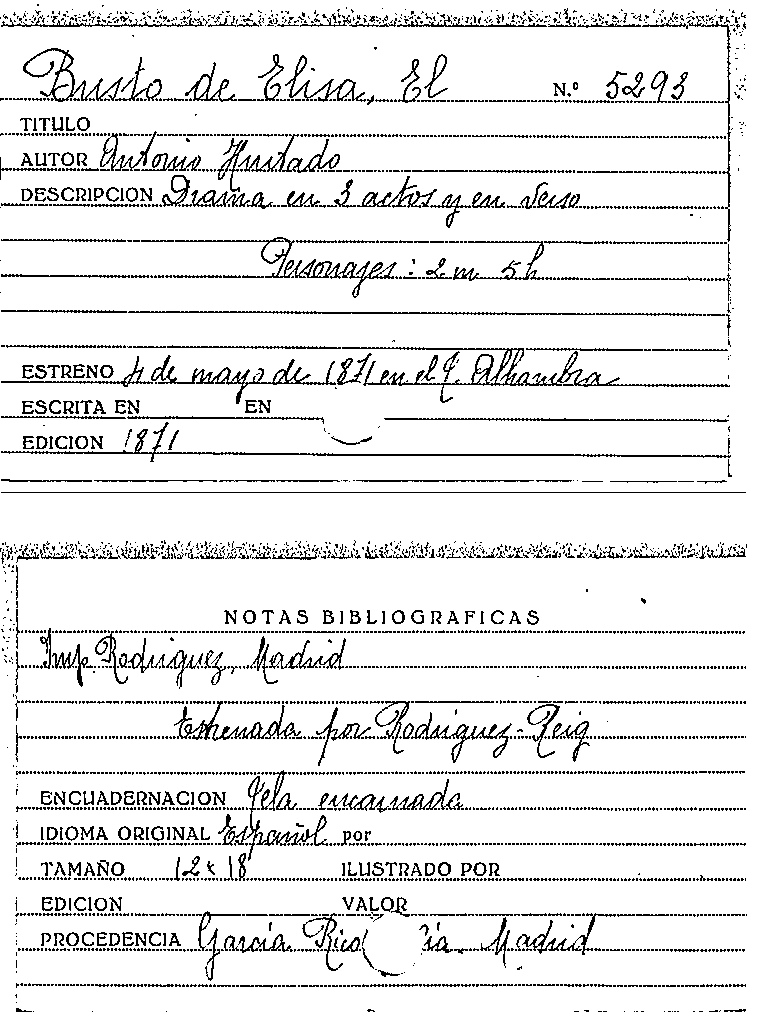 Busto de Elisa, El N.º 5293
TITULO
AUTOR Antonio Hurtado
DESCRIPCION Drama en 3 actos y en verso
Personajes: 2 m 5 h
ESTRENO 4 de mayo de 1871 en el T. Alhambra
ESCRITA EN EN
EDICION 1871
NOTAS BIBLIOGRAFICAS
Imp. Rodriguez, Madrid
Estrenada por Rodriguez-Reig
ENCUADERNACION Tela encarnada
IDIOMA ORIGINAL Español por
TAMAÑO 12 x 18 ILUSTRADO POR
EDICION VALOR
PROCEDENCIA Garcia Rico Madrid